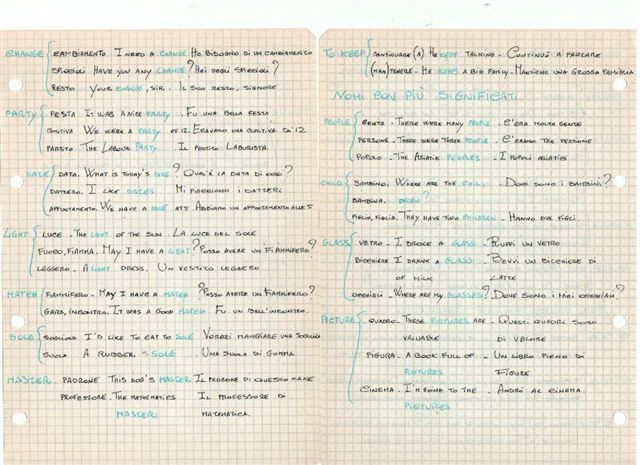 CHANGE { CAMBIAMENTO. I NEED A CHANGE HO BISOGNO DI UN CAMBIAMENTO
SPICCIOLI HAVE YOU ANY CHANGE? HAI DEGLI SPICCIOLI?
RESTO YOUR CHANGE, SIR. IL SUO RESTO, SIGNORE
PARTY { FESTA IT WAS A NICE PARTY. FU UNA BELLA FESTA
COMITIVA WE WERE A PARTY OF 12. ERAVAMO UNA COMITIVA DI 12
PARTITO THE LABOUR PARTY. IL PARTITO LABURISTA.
DATE { DATA. WHAT IS TODAY'S DATE? QUAL'È LA DATA DI OGGI?
DATTERO. I LIKE DATES MI PIACCIONO I DATTERI
APPUNTAMENTO. WE HAVE A DATE AT 5. ABBIAMO UN APPUNTAMENTO ALLE 5
LIGHT { LUCE. THE LIGHT OF THE SUN. LA LUCE DEL SOLE
FUOCO, FIAMMA. MAY I HAVE A LIGHT? POSSO AVERE UN FIAMMIFERO?
LEGGERO. A LIGHT DRESS. UN VESTITO LEGGERO
MATCH { FIAMMIFERO. MAY I HAVE A MATCH? POSSO AVERE UN FIAMMIFERO?
GARA, INCONTRO. IT WAS A GOOD MATCH. FU UN BELL'INCONTRO.
SOLE { SOGLIOLA I'D LIKE TO EAT TO SOLE VORREI MANGIARE UNA SOGLIOLA
SUOLA A RUBBER SOLE UNA SUOLA DI GOMMA
MASTER. PADRONE THIS DOG'S MASTER IL PADRONE DI QUESTO CANE
PROFESSORE. THE MATHEMATICS IL PROFESSORE DI
MASTER MATEMATICA.
TO KEEP { CONTINUARE (A) HE KEPT TALKING. CONTINUÒ A PARLARE
(MAN)TENERE. HE KEEPS A BIG FAMILY. MANTIENE UNA GROSSA FAMIGLIA
NOMI CON PIÙ SIGNIFICATI
PEOPLE { GENTE. THERE WERE MANY PEOPLE. C'ERA MOLTA GENTE
PERSONE. THERE WERE THREE PEOPLE. C'ERANO TRE PERSONE
POPOLO. THE ASIATIC PEOPLES. I POPOLI ASIATICI
CHILD { BAMBINO. WHERE ARE THE CHIL. DOVE SONO I BAMBINI?
BAMBINA. DREN?
FIGLIO, FIGLIA. THEY HAVE TWO CHILDREN. HANNO DUE FIGLI.
GLASS { VETRO. I BROKE A GLASS. RUPPI UN VETRO
BICCHIERE I DRANK A GLASS. BEVVI UN BICCHIERE DI
OF MILK LATTE
OCCHIALI. WHERE ARE MY GLASSES? DOVE SONO I MIEI OCCHIALI?
PICTURE { QUADRO. THESE PICTURES ARE. QUESTI QUADRI SONO
VALUABLE DI VALORE
FIGURA. A BOOK FULL OF. UN LIBRO PIENO DI
PICTURES FIGURE
CINEMA. I'M GOING TO THE. ANDRÒ AL CINEMA
PICTURES